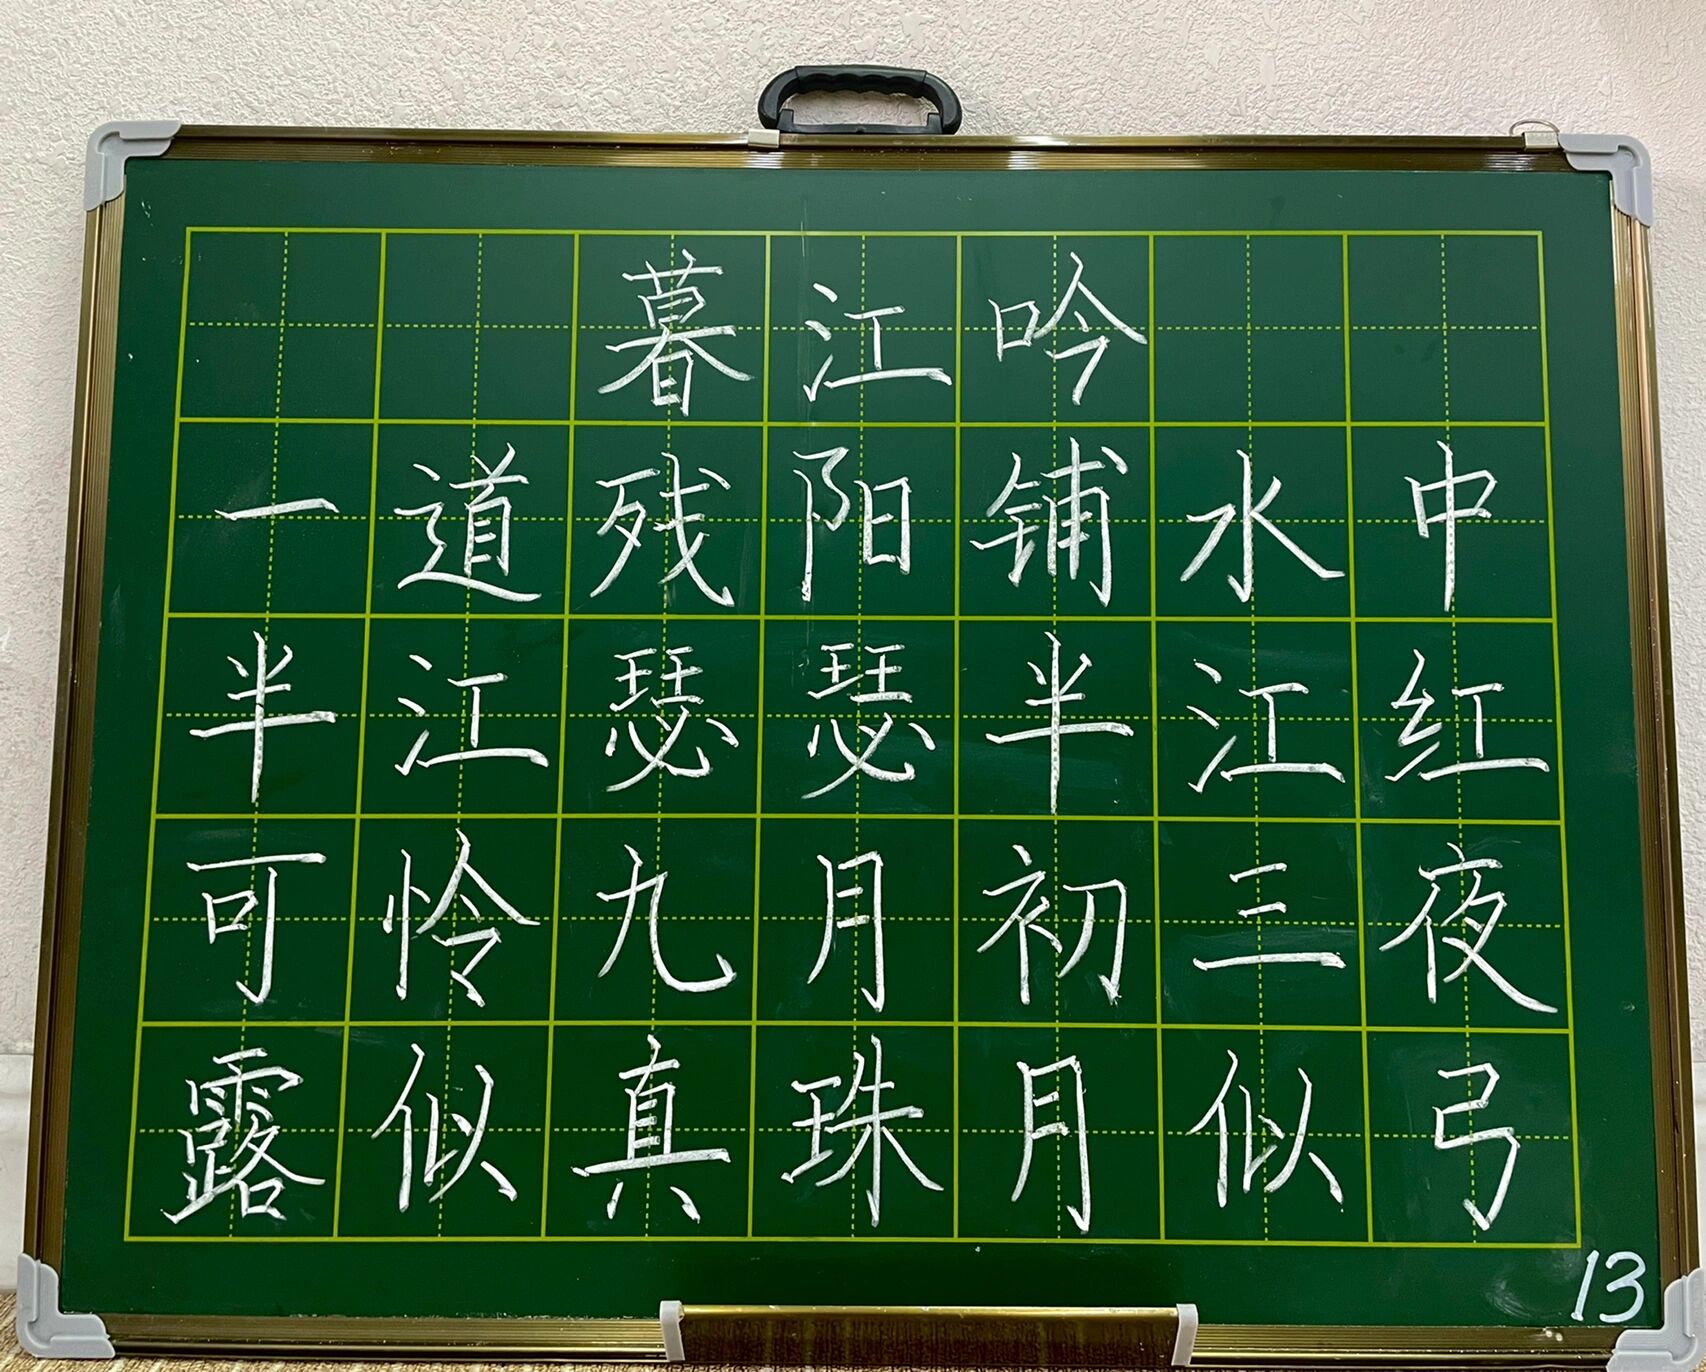 暮江吟
一道残阳铺水中
半江瑟瑟半江红
可怜九月初三夜
露似真珠月似弓
13